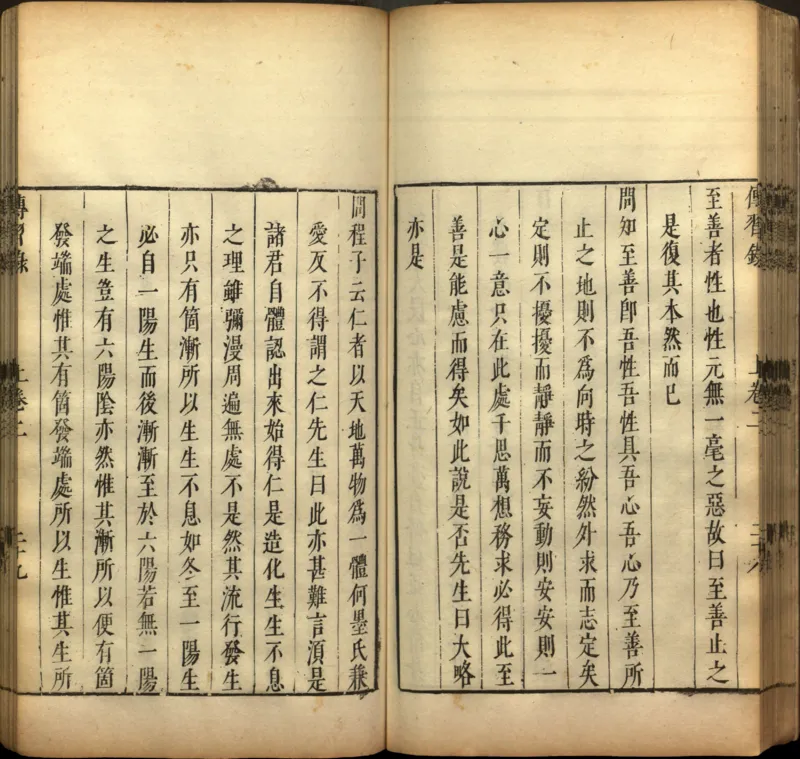 傳習錄
上卷二
二十八
至善者性也性元無一毫之惡故曰至善止之
是復其本然而已
問知至善卽吾性吾性具吾心吾心乃至善所
止之地則不為向時之紛然外求而志定矣
定則不擾擾而靜靜而不妄動則安安則一
心一意只在此處千思萬想務求必得此至
善是能慮而得矣如此說是否先生曰大略
亦是
問程子云仁者以天地萬物為一體何墨氏兼
愛反不得謂之仁先生曰此亦甚難言須是
諸君自體認出來始得仁是造化生生不息
之理雖彌漫周遍無處不是然其流行發生
亦只有箇漸所以生生不息如冬至一陽生
必自一陽生而後漸漸至於六陽若無一陽
之生豈有六陽陰亦然惟其漸所以便有箇
發端處惟其有箇發端處所以生惟其生所
傳習錄
上卷二
二十九